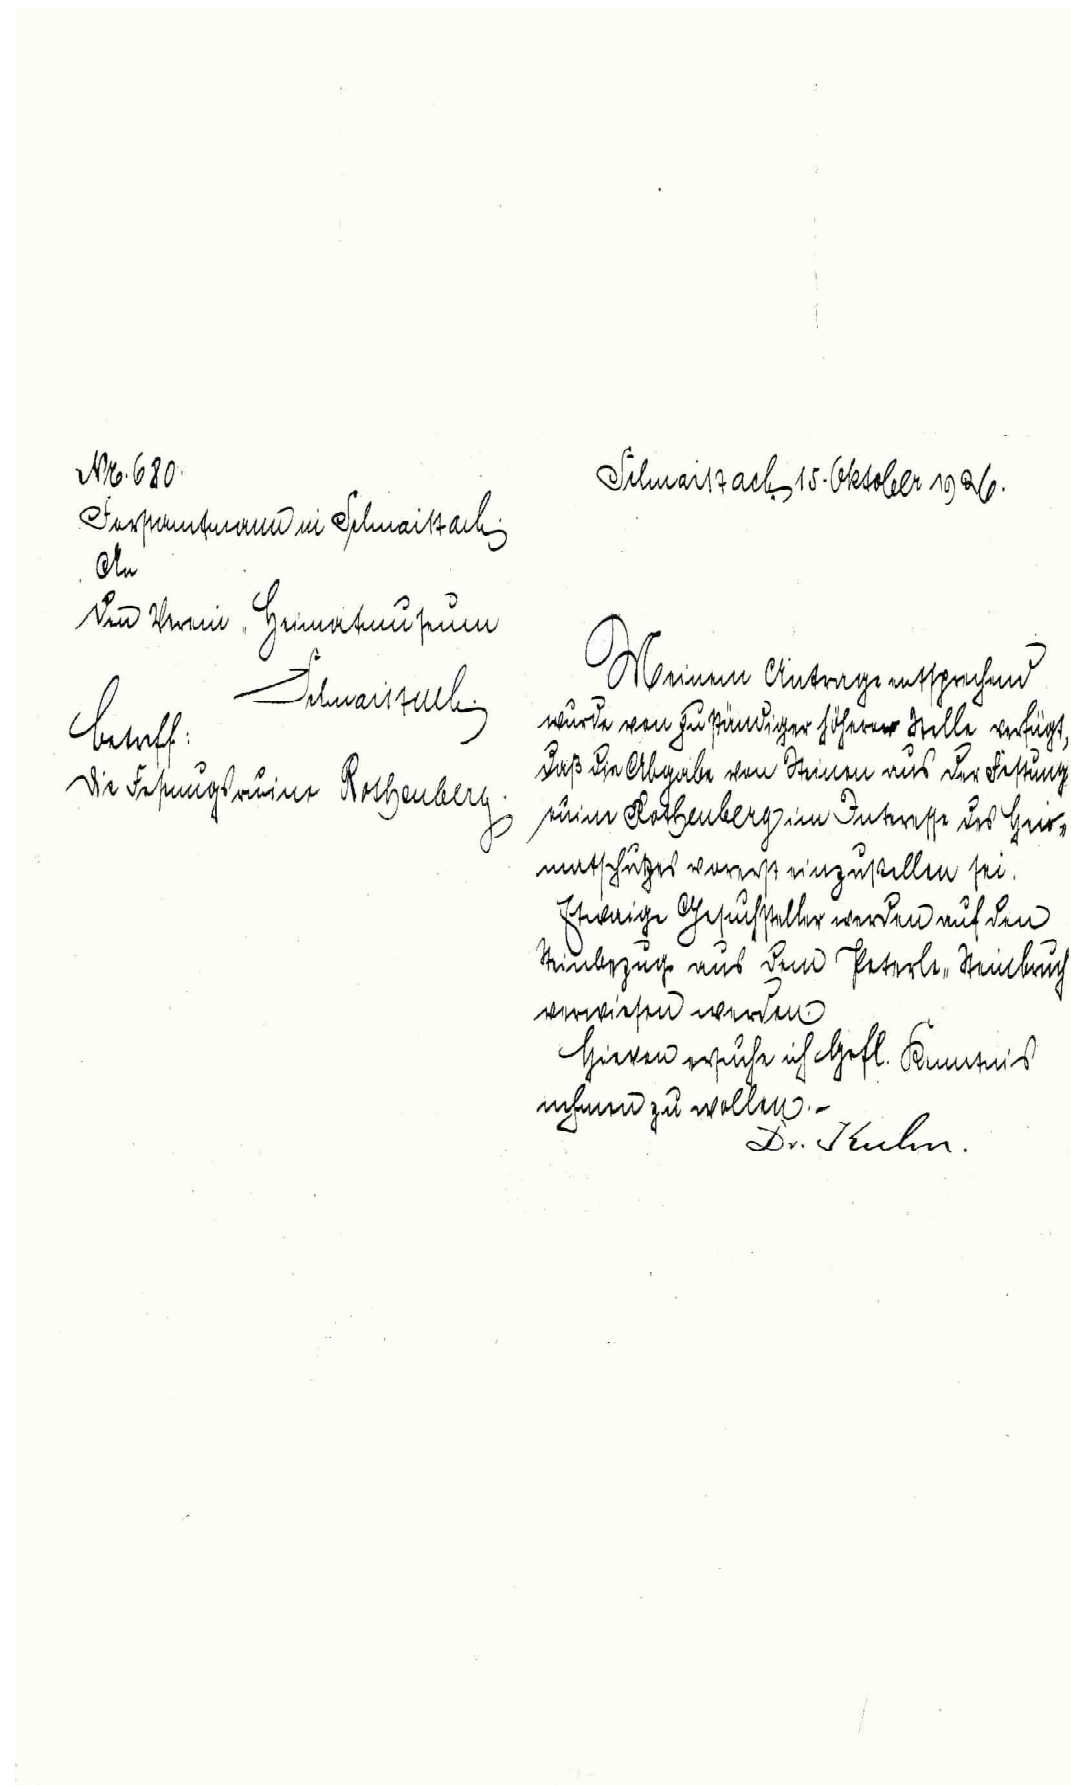 Nr. 680
Forstamtmann in Schnaittach
An
den Verein „Heimatmuseum
Schnaittach.
Betreff:
Die Festungsruine Rothenberg.
Schnaittach, 15. Oktober 1926.
Meinem Antrage entsprechend
wurde von zuständiger höherer Stelle verfügt,
daß die Abgabe von Steinen aus der Festung
ruine Rothenberg im Interesse des Hei=
matschutzes vorerst einzustellen sei.
Etwaige Gesuchsteller werden auf den
Steinbezug aus dem Peterle-Steinbruch
verwiesen werden.
Hievon ersuche ich gefl. Kenntnis
nehmen zu wollen.-
Dr. Kuhn.